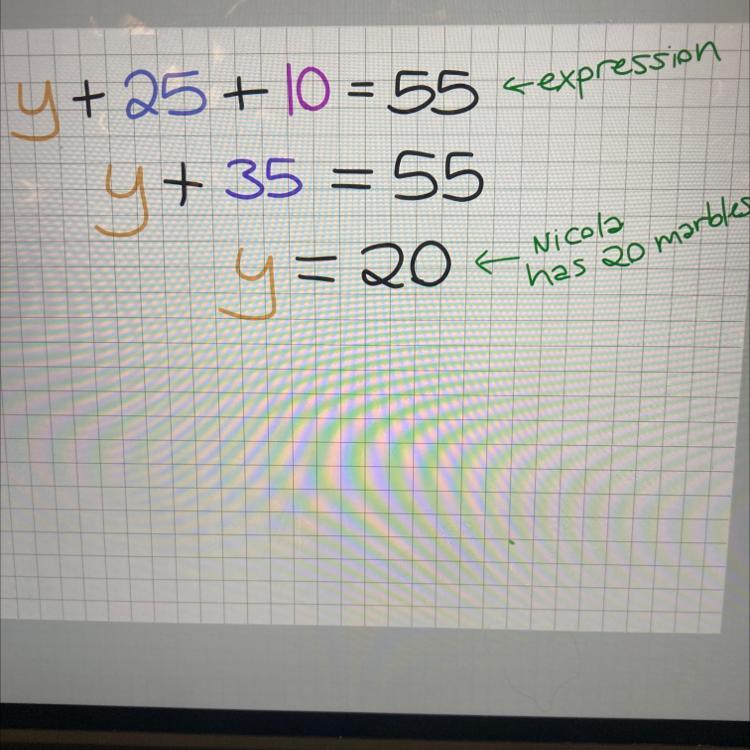 y + 25 + 10 = 55 ← expression
y + 35 = 55
y = 20 ← Nicola
has 20 marbles